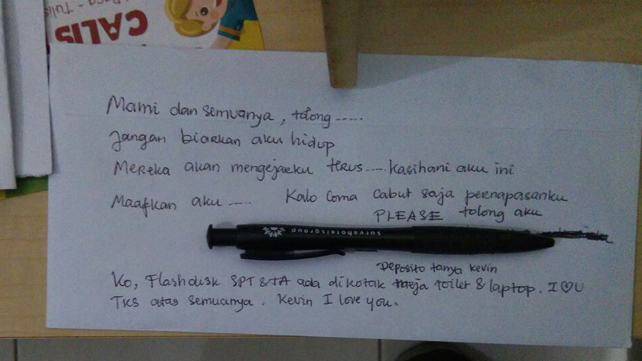 CALIS
Mami dan semuanya, tolong .....
Jangan biarkan aku hidup
Mereka akan mengejarku terus .... kasihani aku ini
Maafkan aku .... Kalo Coma Cabut saja pernapasanku
PLEASE tolong aku
suryahotelsgroup
Deposito tanya kevin
Ko, Flashdisk SPT & TA ada di kotak meja toilet & laptop. I ♡ U
Tks atas semuanya. Kevin I love you.